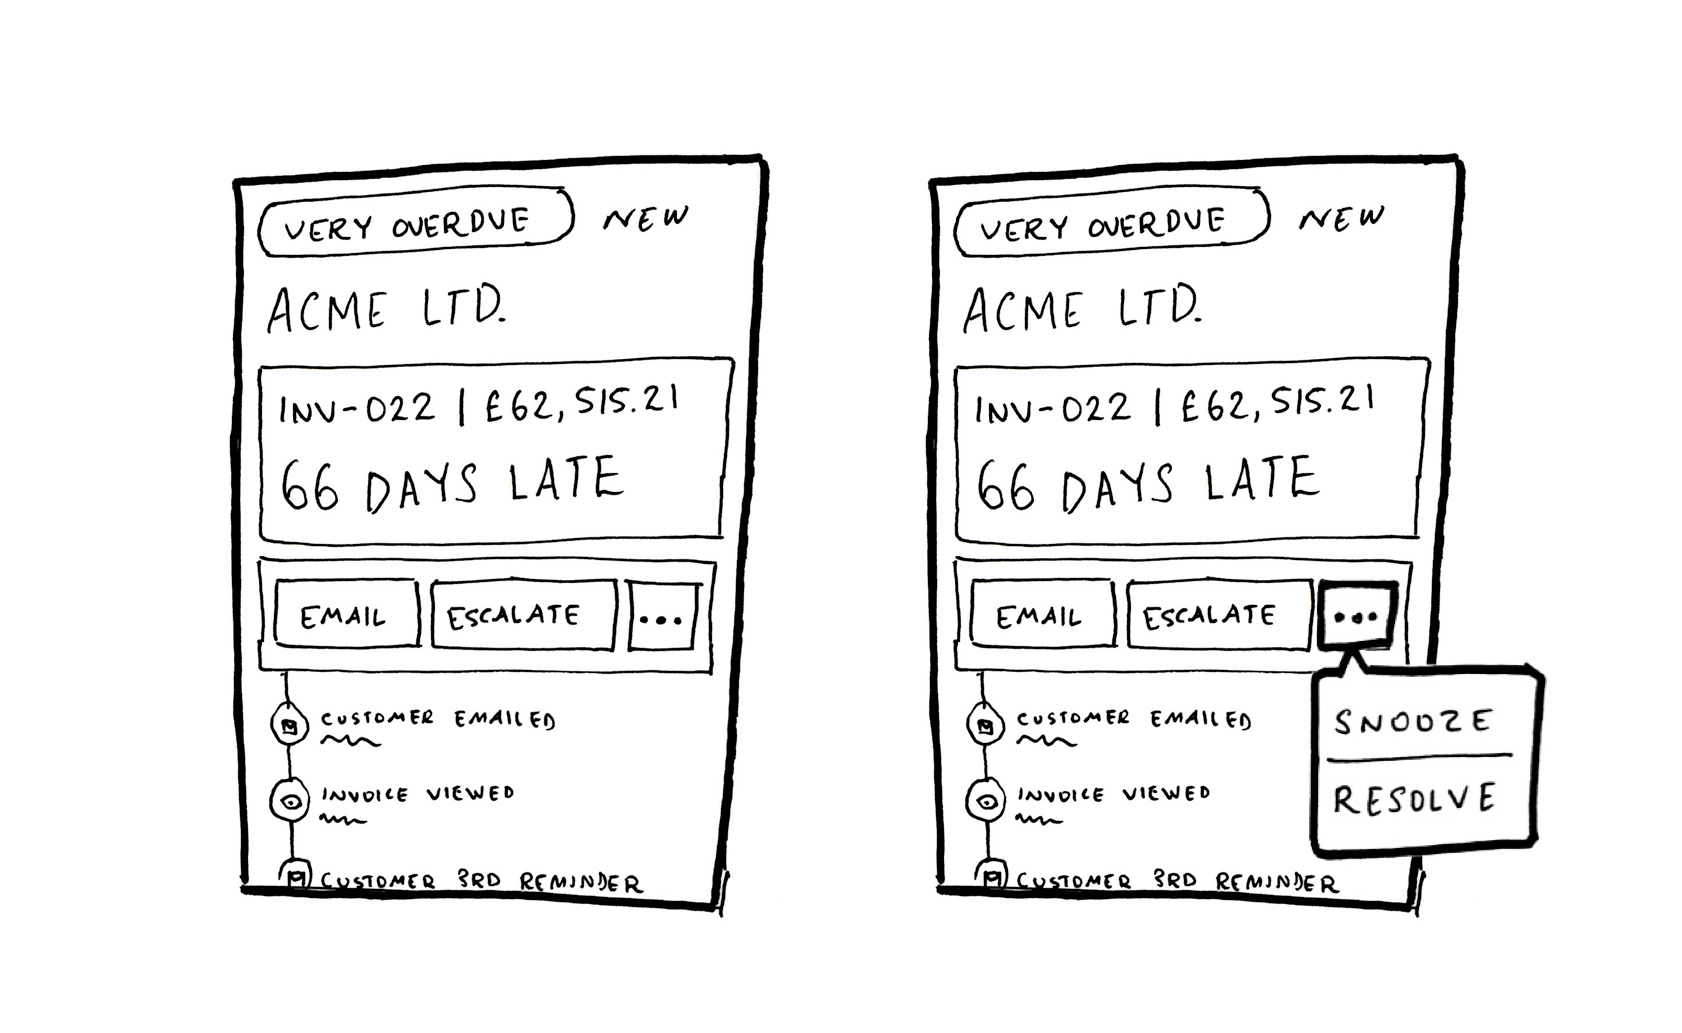 VERY OVERDUE NEW
ACME LTD.
INV-022 | £62,515.21
66 DAYS LATE
EMAIL ESCALATE ...
CUSTOMER EMAILED
INVOICE VIEWED
CUSTOMER 3RD REMINDER
VERY OVERDUE NEW
ACME LTD.
INV-022 | £62,515.21
66 DAYS LATE
EMAIL ESCALATE ...
SNOOZE
RESOLVE
CUSTOMER EMAILED
INVOICE VIEWED
CUSTOMER 3RD REMINDER